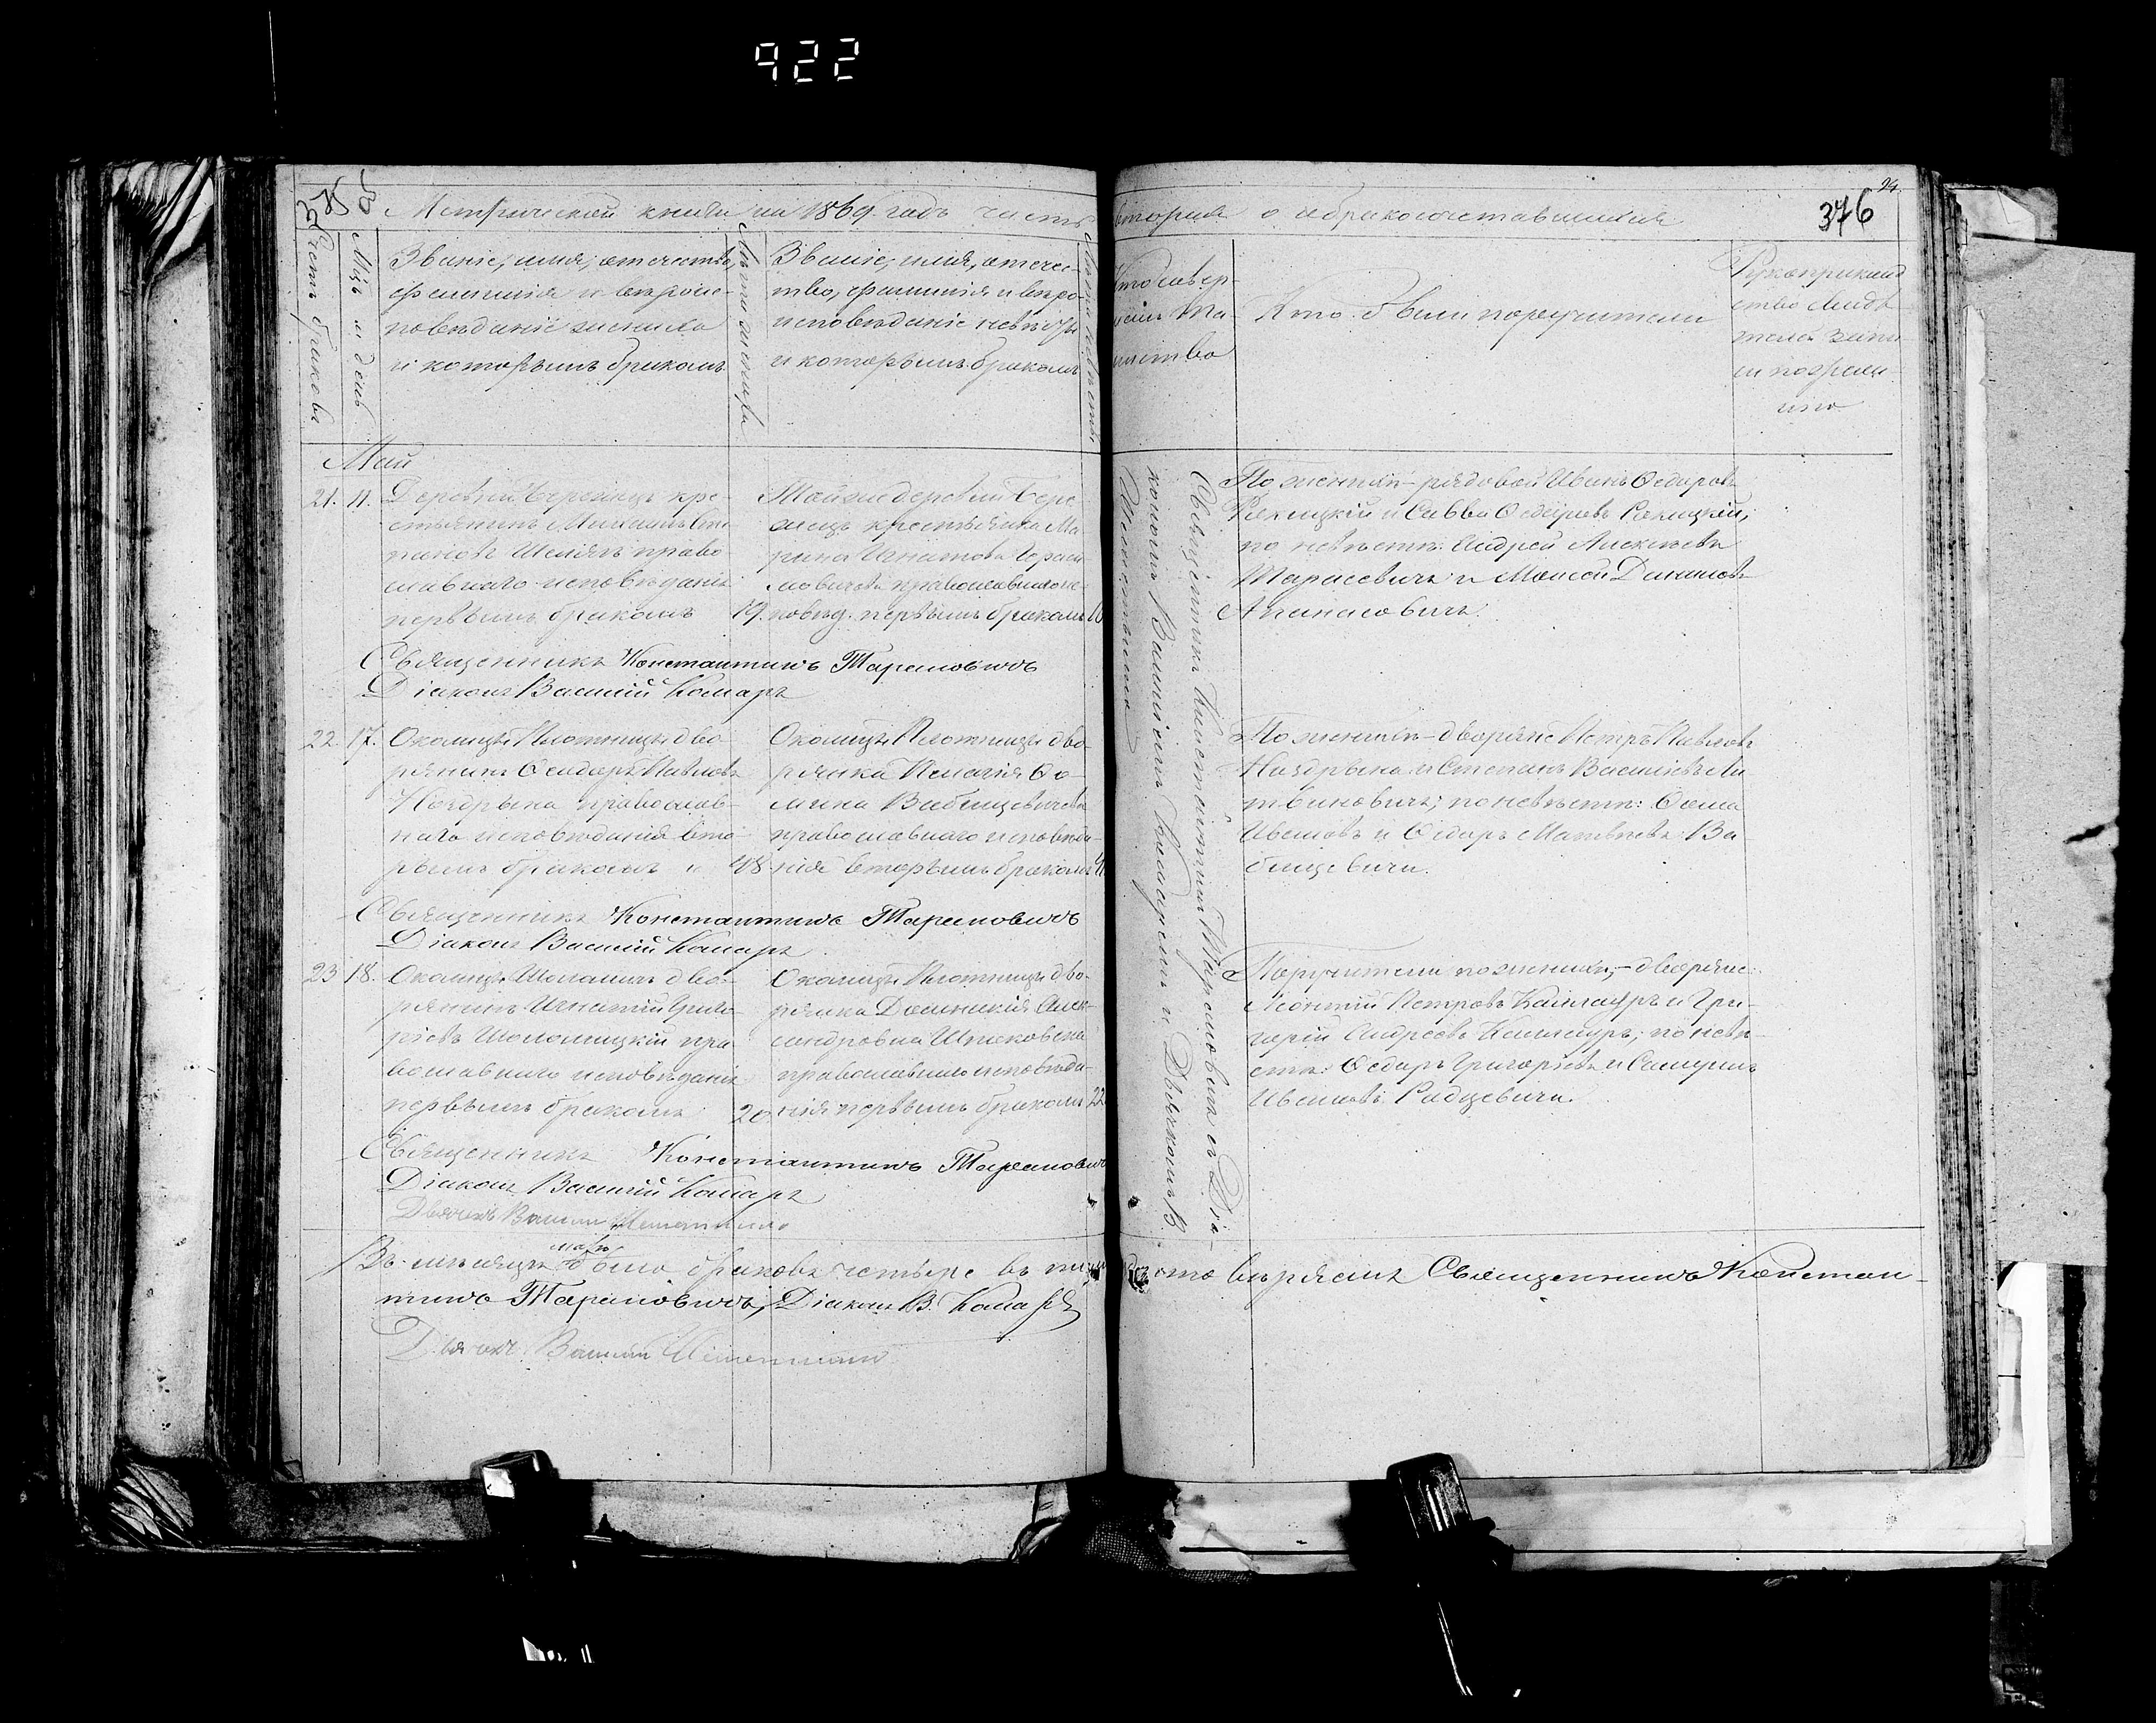 922
24.
376
Метрической книги на 1869 годъ часть вторая о бракосочетавшихся
Счетъ браковъ
Мцъ и день
Званіе, имя, отечество,
фамилія и вѣроис-
повѣданіе жениха
и которымъ бракомъ
Лѣта жениха
Званіе, имя, отечес-
тво, фамилія и вѣро-
исповѣданіе невѣсты
и которымъ бракомъ
Лѣта невѣсты
Кто совер-
шилъ Та-
инство
Кто были поручители
Рукоприклад
ство свидѣ
телей запи
си по желан
ію
Май
21. 11. Деревни Бережцъ кре-
стьянинъ Михаилъ
Шоломъ право
славнаго исповѣданія
первымъ бракомъ
19.
Той же деревни Бере
жецъ крестьянка Ма
рина Игнатова Гераси
мовичева православнаго ис-
повѣд. первымъ бракомъ
По женихѣ рядовой Иванъ Ѳедоровъ
Ракицкій и Савва Ѳедоровъ Ракицкій;
по невѣстѣ: Андрей Алексѣевъ
Тарасевичъ и Моисей Даниловъ
Апанасовичъ.
Священникъ Константинъ Тарановичъ
Діаконъ Василій Комаръ
22. 17. Околицы Плотницы дво-
рянинъ Ѳеодоръ Павловъ
Ноздрына православ-
наго исповѣданія вто-
рымъ бракомъ
48
Околицы Плотницы дво-
рянка Пелагія Ѳо-
мина Вабищевичева
православнаго исповѣда-
нія вторымъ бракомъ
По женихѣ – дворяне Петръ Павловъ
Ноздрына и Степанъ Васильевъ Ли
твиновичъ; по невѣстѣ: Ѳома
Ивановъ и Ѳедоръ Матвѣевъ Ва
бищевичи.
Священникъ Константинъ Тарановичъ
Діаконъ Василій Комаръ
23 18. Околицы Шоломичъ дво-
рянинъ Игнатій Григо-
рьевъ Шоломицкій пра
вославнаго исповѣданія
первымъ бракомъ
20
Околицы Плотницы дво-
рянка Домникія Алек-
сандровна Шпаковска
православнаго исповѣда-
нія первымъ бракомъ 22
Поручители по женихѣ, – дворяне
Леонтій Петровъ Кайлауръ и Гри-
горій Андреевъ Кайлауръ; по невѣ-
стѣ: Ѳедоръ Григорьевъ и Самуилъ
Ивановъ Радцевичи.
Священникъ Константинъ Тарановичъ
Діаконъ Василій Комаръ
Дьячекъ
Священникъ Константинъ Тарановичъ съ Діа-
кономъ Василіемъ Комаромъ и Дьячкомъ В.
Въ мѣсяцѣ маѣ было браковъ четыре въ вѣряемъ Священникъ Констан-
тинъ Тарановичъ, Діаконъ В. Комаръ
Дьячекъ